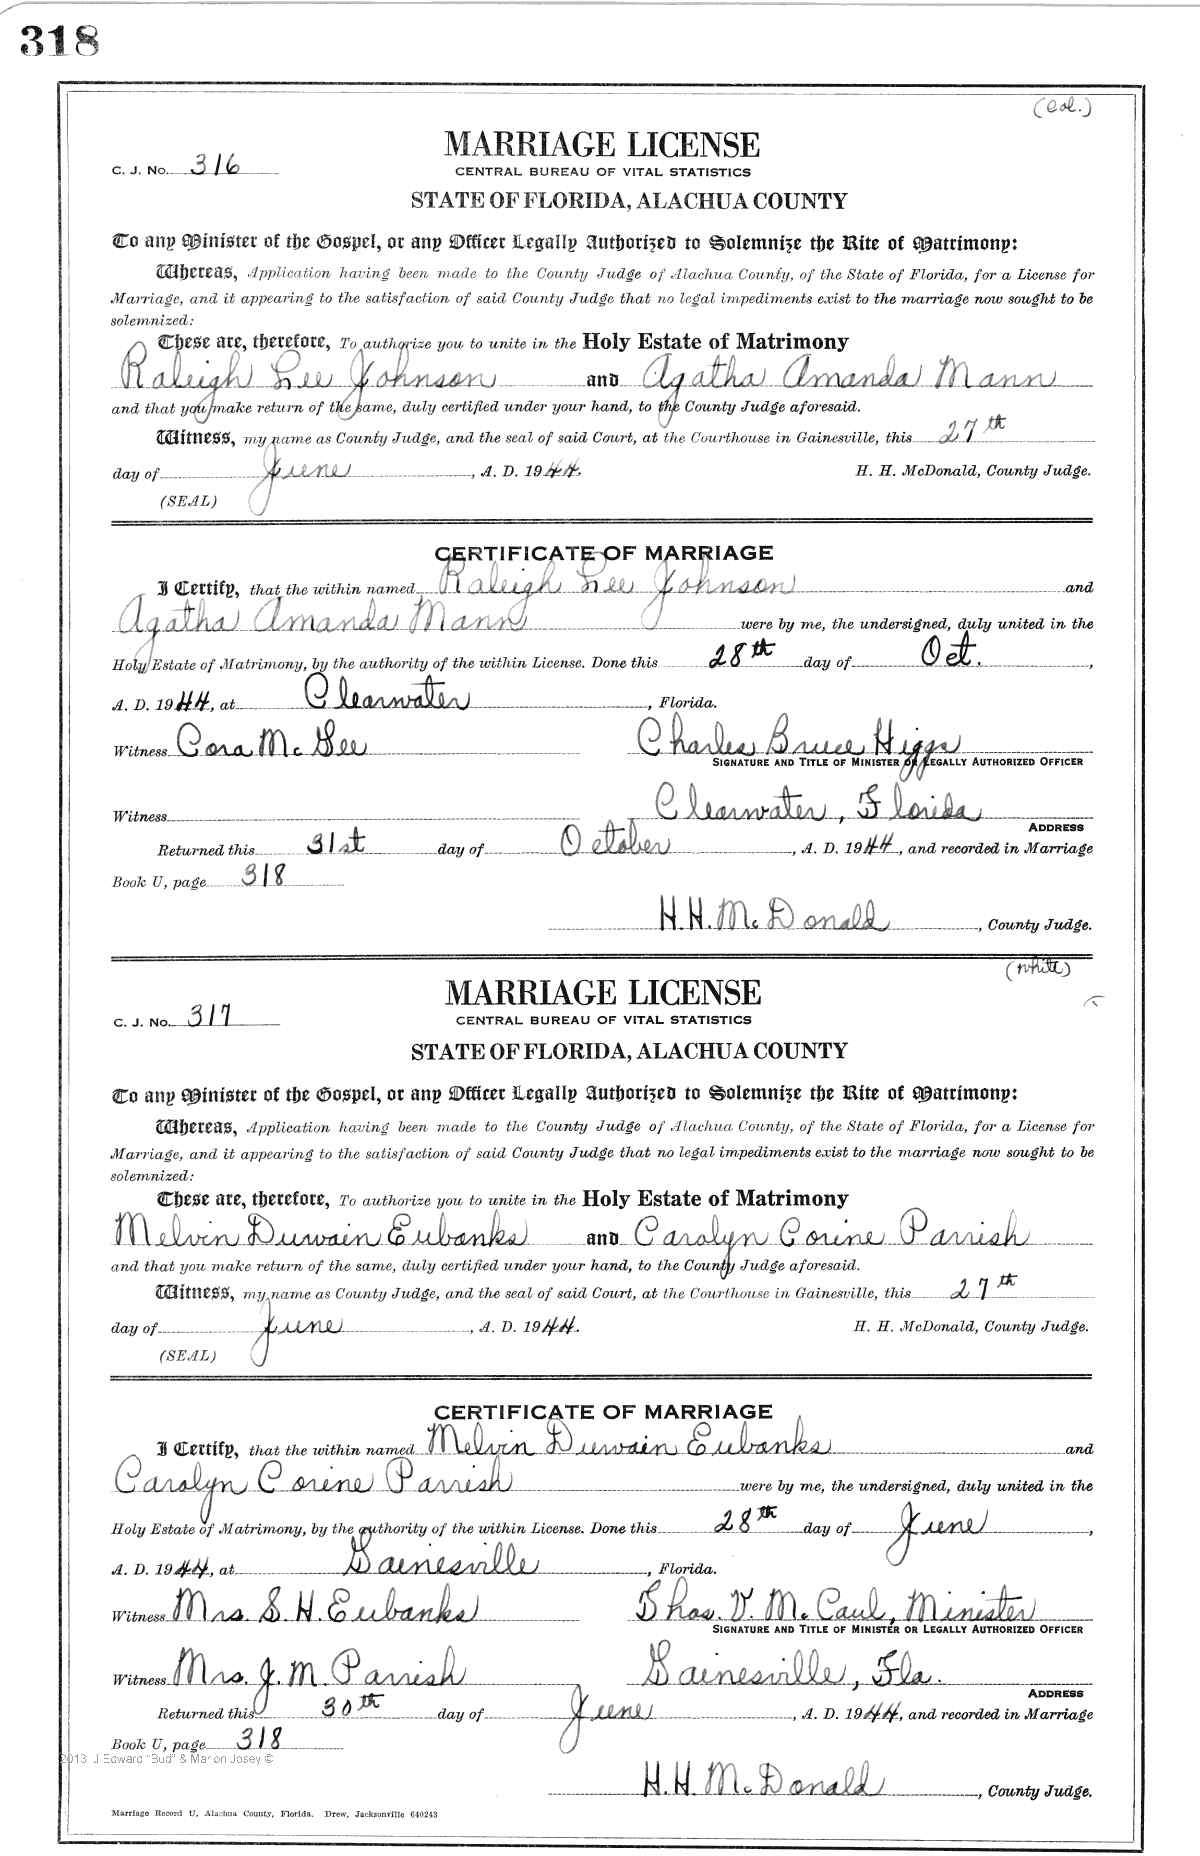 318
(Col.)
MARRIAGE LICENSE
C. J. No. 316
CENTRAL BUREAU OF VITAL STATISTICS
STATE OF FLORIDA, ALACHUA COUNTY
To any Minister of the Gospel, or any Officer Legally Authorized to Solemnize the Rite of Matrimony:
Whereas, Application having been made to the County Judge of Alachua County, of the State of Florida, for a License for
Marriage, and it appearing to the satisfaction of said County Judge that no legal impediments exist to the marriage now sought to be
solemnized:
These are, therefore, To authorize you to unite in the Holy Estate of Matrimony
Raleigh Lee Johnson and Agatha Amanda Mann
and that you make return of the same, duly certified under your hand, to the County Judge aforesaid.
Witness, my name as County Judge, and the seal of said Court, at the Courthouse in Gainesville, this 27th
day of June, A. D. 1944. H. H. McDonald, County Judge.
(SEAL)
CERTIFICATE OF MARRIAGE
I Certify, that the within named Raleigh Lee Johnson and
Agatha Amanda Mann were by me, the undersigned, duly united in the
Holy Estate of Matrimony, by the authority of the within License. Done this 28th day of Oct.,
A. D. 1944, at Clearwater, Florida.
Witness Cora McGee Charles Bruce Higgs
SIGNATURE AND TITLE OF MINISTER OR LEGALLY AUTHORIZED OFFICER
Witness Clearwater, Florida
ADDRESS
Returned this 31st day of October, A. D. 1944, and recorded in Marriage
Book U, page 318
H.H. McDonald, County Judge.
(white)
MARRIAGE LICENSE
C. J. No. 317
CENTRAL BUREAU OF VITAL STATISTICS
STATE OF FLORIDA, ALACHUA COUNTY
To any Minister of the Gospel, or any Officer Legally Authorized to Solemnize the Rite of Matrimony:
Whereas, Application having been made to the County Judge of Alachua County, of the State of Florida, for a License for
Marriage, and it appearing to the satisfaction of said County Judge that no legal impediments exist to the marriage now sought to be
solemnized:
These are, therefore, To authorize you to unite in the Holy Estate of Matrimony
Melvin Duwain Eubanks and Carolyn Corine Parrish
and that you make return of the same, duly certified under your hand, to the County Judge aforesaid.
Witness, my name as County Judge, and the seal of said Court, at the Courthouse in Gainesville, this 27th
day of June, A. D. 1944. H. H. McDonald, County Judge.
(SEAL)
CERTIFICATE OF MARRIAGE
I Certify, that the within named Melvin Duwain Eubanks and
Carolyn Corine Parrish were by me, the undersigned, duly united in the
Holy Estate of Matrimony, by the authority of the within License. Done this 28th day of June,
A. D. 1944, at Gainesville, Florida.
Witness Mrs. S. H. Eubanks Thos. V. McCaul, Minister
SIGNATURE AND TITLE OF MINISTER OR LEGALLY AUTHORIZED OFFICER
Witness Mrs. J. M. Parrish Gainesville, Fla.
ADDRESS
Returned this 30th day of June, A. D. 1944, and recorded in Marriage
Book U, page 318
2013 J Edward "Bud" & Marion Josey ©
H.H. McDonald, County Judge.
Marriage Record U, Alachua County, Florida. Drew, Jacksonville 640243